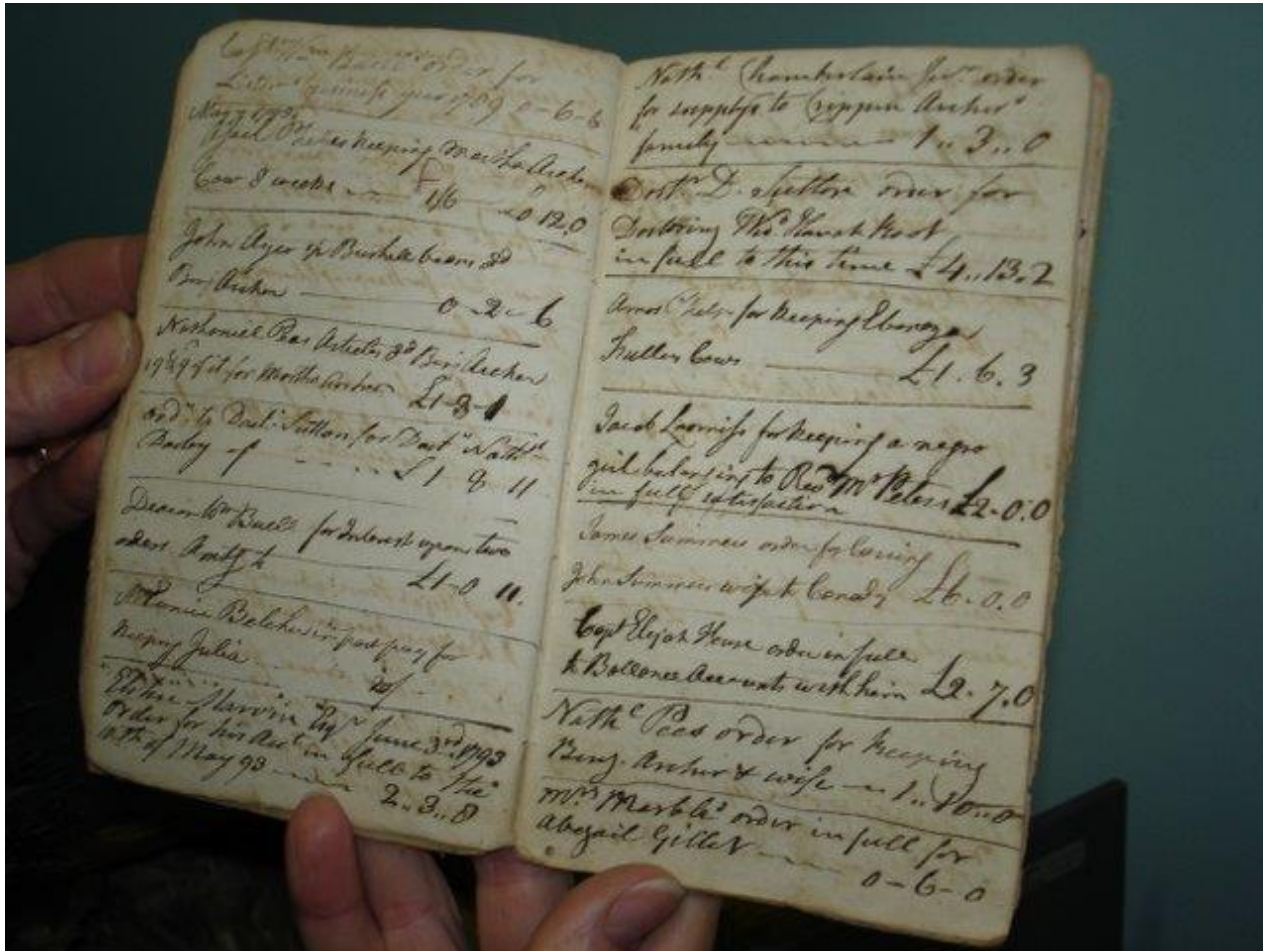 order for
year 1789 0-6-6
May 1793
keeping Martha Archer
Cow 8 weeks 1/6 0 12.0
John Ayer Bushell beans
Benj Archer 0-2-6
Nathaniel Peas Benj Archer
for Martha Archer £1-8-1
ord to Doct Sutton for Doct Nathl
Bailey of £1 8 11
Deacon Wm Buell for Interest upon two
orders £1-0 11.
Belcher in part pay for
keeping Julia
Elihu Marvin Esqr June 3rd 1793
Order for his Acct in full to the
10th of May 93 2..3..8
Nathl Chamberlain Junr order
for supplys to Crippin Archers
family 1..3..0
Doctr D. Sutton order for
Doctoring Root
in full to this time £4..13.2
Amos for keeping Ebenezer
Fuller Cows £1.6.3
Jacob Loomiss for keeping a negro
girl belonging to Revd Mr Peters £2-0.0
in full satisfaction
James Summers order for
John Summers wife to Canady £6-0.0
Capt Elijah House order in full
to Ballance Accounts with him £2-7.0
Nathl Peas order for keeping
Benj. Archer & wife 1..10..0
Mrs Marbls order in full for
Abigail Gillet 0-6-0